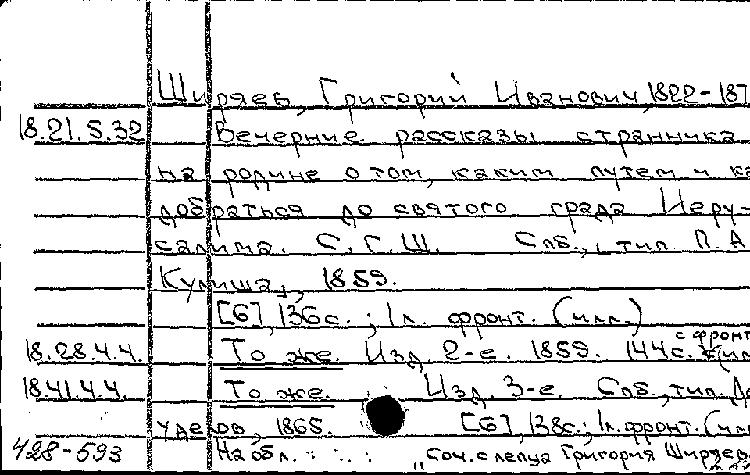 Ширяев, Григорий Иванович, 1822-187
18.21.5.32 Вечерние рассказы странника
на родине о том, каким путем и ка
добраться до святого града Иеру-
салима. С.Г.Ш. Спб., тип. П.А
Кулиша, 1859.
[6], 136с.; 1л. фронт. (илл.)
с фронт
18.28.4.4. То же. Изд. 2-е. 1859. 144с. (ил
18.41.4.4. То же. Изд. 3-е. Спб., тип. Де
уделов, 1865. [6], 138с.; 1л. фронт. (илл
428-593 На обл.: "Соч. слепца Григория Ширяев